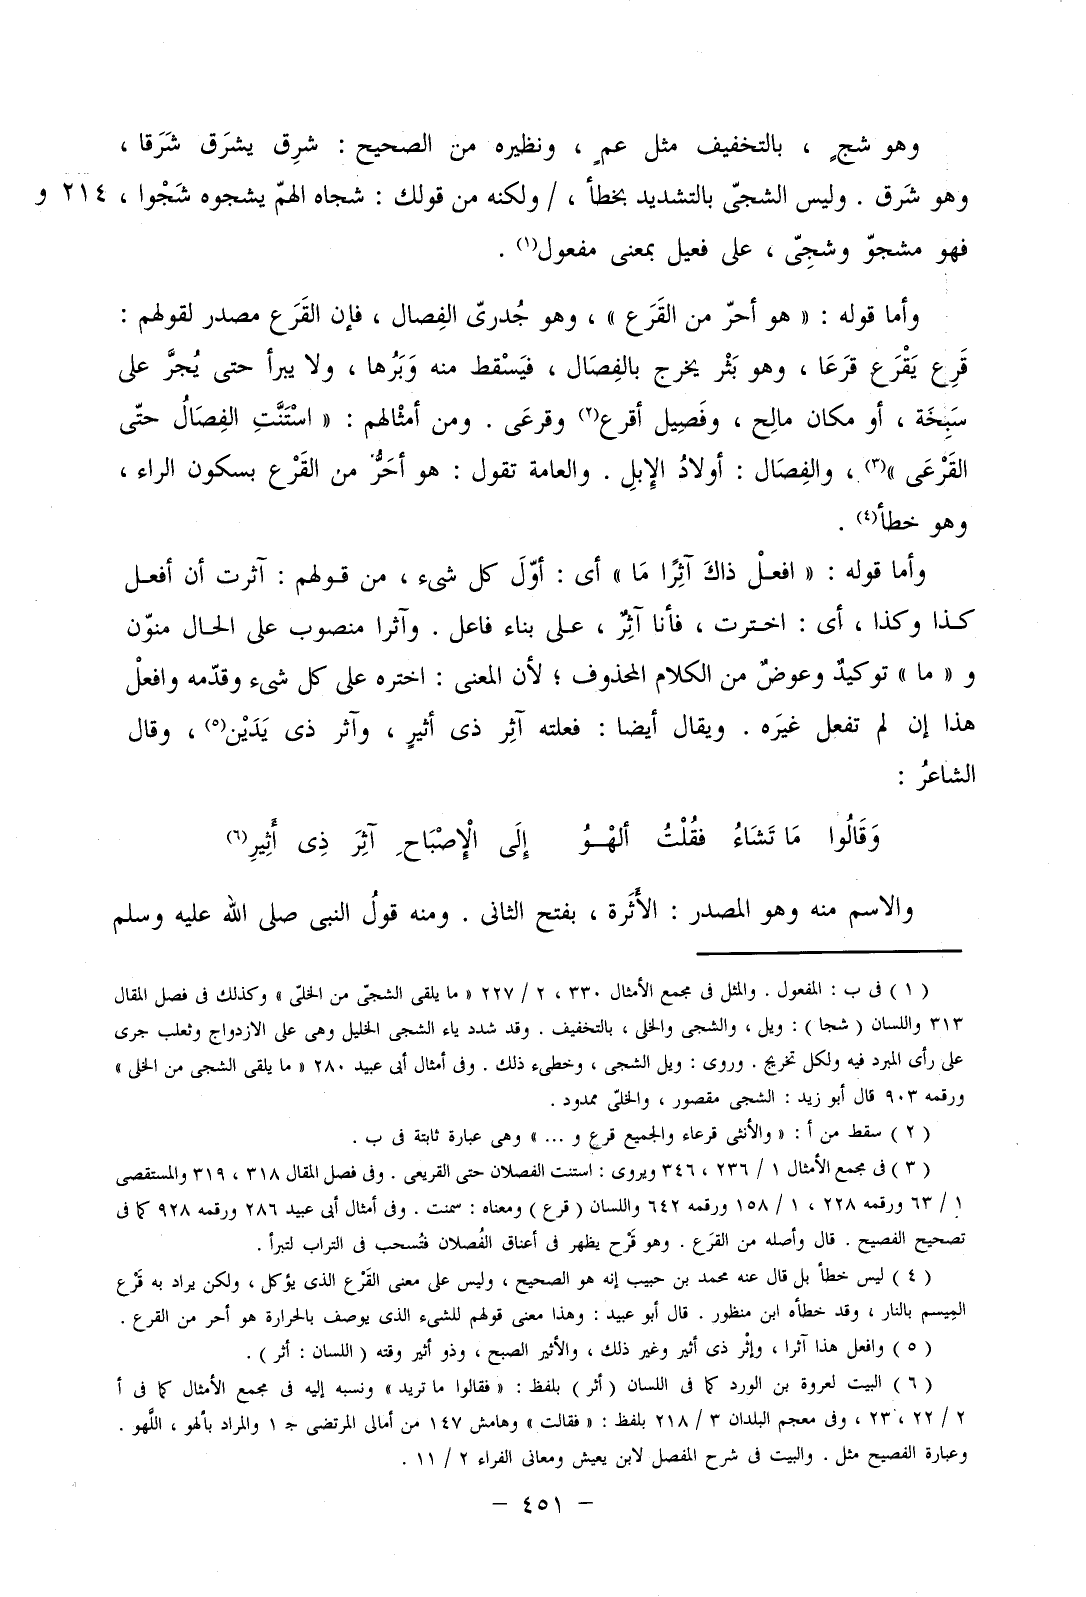 وهو شجٍ ، بالتخفيف مثل عمٍ ، ونظيره من الصحيح : شرِق يشرَق شَرَقا ،
وهو شَرق . وليس الشجىّ بالتشديد بخطأ ، / ولكنه من قولك : شجاه الهمّ يشجوه شَجْوا ، ٢١٤ و
فهو مشجوّ وشجِىّ ، على فعيل بمعنى مفعول(١) .
وأما قوله : « هو أحرّ من القَرَع » ، وهو جُدرىّ الفِصال ، فإن القَرَع مصدر لقولهم :
قَرِع يَقْرَع قرَعَا ، وهو بَثْر يخرج بالفِصَال ، فيَسْقط منه وَبَرُها ، ولا يبرأ حتى يُجرَّ على
سَبِخَة ، أو مكان مالِح ، وفَصِيل أقرع(٢) وقرعَى . ومن أمثْالهم : « اسْتَنَّتِ الفِصَالُ حتّى
القَرْعَى »(٣) ، والفِصَال : أولادُ الإبلِ . والعامة تقول : هو أحَرُّ من القَرْع بسكون الراء ،
وهو خطأ(٤) .
وأما قوله : « افعلْ ذاكَ آثِرًا مَا » أى : أوّلَ كل شىء ، من قولهم : آثرت أن أفعل
كذا وكذا ، أى : اخترت ، فأنا آثِرٌ ، على بناء فاعل . وآثرا منصوب على الحال منوّن
و « ما » توكيدٌ وعوضٌ من الكلام المحذوف ؛ لأن المعنى : اختره على كل شىء وقدّمه وافعلْ
هذا إن لم تفعل غيَره . ويقال أيضا : فعلته آثِر ذى أثيرٍ ، وآثر ذى يَدَيْن(٥) ، وقال
الشاعرُ :
وَقَالُوا مَا تَشَاءُ فقُلْتُ ألهْو إِلَى الْإِصْبَاحِ آثِرَ ذِى أَثِيرِ(٦)
والاسم منه وهو المصدر : الأَثَرة ، بفتح الثانى . ومنه قولُ النبى صلى الله عليه وسلم
( ١ ) فى ب : المفعول . والمثل فى مجمع الأمثال ٣٣٠ ، ٢ / ٢٢٧ « ما يلقى الشجىّ من الخلىّ » وكذلك فى فصل المقال
٣١٣ واللسان ( شجا ) : ويل ، والشجى والخلى ، بالتخفيف . وقد شدد ياء الشجى الخليل وهى على الازدواج وثعلب جرى
على رأى المبرد فيه ولكل تخريج . وروى : ويل الشجى ، وخطىء ذلك . وفى أمثال أبى عبيد ٢٨٠ « ما يلقى الشجى من الخلى »
ورقمه ٩٠٣ قال أبو زيد : الشجى مقصور ، والخلىّ ممدود .
( ٢ ) سقط من أ : « والأنثى قرعاء والجميع قرع و ... » وهى عبارة ثابتة فى ب .
( ٣ ) فى مجمع الأمثال ١ / ٢٣٦ ، ٣٤٦ ويروى : استنت الفصلان حتى القريعى . وفى فصل المقال ٣١٨ ، ٣١٩ والمستقصى
١ / ٦٣ ورقمه ٢٢٨ ، ١ / ١٥٨ ورقمه ٦٤٢ واللسان ( قرع ) ومعناه : سمنت . وفى أمثال أبى عبيد ٢٨٦ ورقمه ٩٢٨ كما فى
تصحيح الفصيح . قال وأصله من القرَع . وهو قَرْح يظهر فى أعناق الفُصلان فتُسحب فى التراب لتبرأ .
( ٤ ) ليس خطأ بل قال عنه محمد بن حبيب إنه هو الصحيح ، وليس على معنى القَرْع الذى يؤكل ، ولكن يراد به قَرْع
المِيسم بالنار ، وقد خطأه ابن منظور . قال أبو عبيد : وهذا معنى قولهم للشىء الذى يوصف بالحرارة هو أحر من القرع .
( ٥ ) وافعل هذا آثرا ، وإثْر ذى أثير وغير ذلك ، والأثير الصبح ، وذو أثير وقته ( اللسان : أثر ) .
( ٦ ) البيت لعروة بن الورد كما فى اللسان ( أثر ) بلفظ : « فقالوا ما تريد » ونسبه إليه فى مجمع الأمثال كما فى أ
٢ / ٢٢ ، ٢٣ ، وفى معجم البلدان ٣ / ٢١٨ بلفظ : « فقالت » وهامش ١٤٧ من أمالى المرتضى جـ ١ والمراد بألهو ، اللَّهو .
وعبارة الفصيح مثل . والبيت فى شرح المفصل لابن يعيش ومعانى الفراء ٢ / ١١ .
– ٤٥١ –